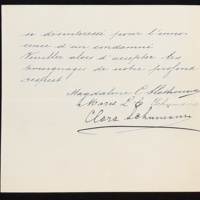 se désintéressé pour l'inno-
cence d'un condamné
Veuillez alors d'accepter les
témoignages de notre profond
respect.
Magdalene C.
Marie L. C.
Clara Schumann